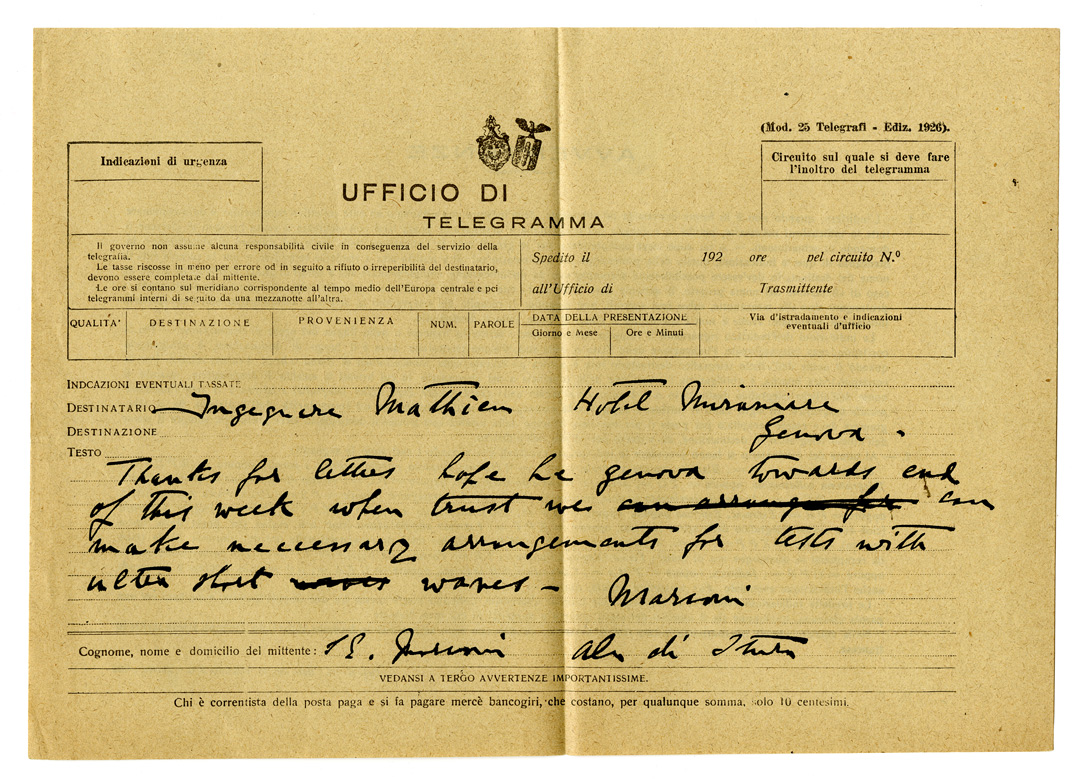 (Mod. 25 Telegrafi - Ediz. 1926).
Indicazioni di urgenza
Circuito sul quale si deve fare
l'inoltro del telegramma
UFFICIO DI
TELEGRAMMA
Il governo non assume alcuna responsabilità civile in conseguenza del servizio della
telegrafia.
Le tasse riscosse in meno per errore od in seguito a rifiuto o irreperibilità del destinatario,
devono essere completate dal mittente.
Le ore si contano sul meridiano corrispondente al tempo medio dell'Europa centrale e pei
telegrammi interni di seguito da una mezzanotte all'altra.
Spedito il 192 ore pel circuito N.º
all'Ufficio di Trasmittente
QUALITA' DESTINAZIONE PROVENIENZA NUM. PAROLE DATA DELLA PRESENTAZIONE
Giorno e Mese Ore e Minuti
Via d'istradamento e indicazioni
eventuali d'ufficio
INDCAZIONI EVENTUALI TASSATE
DESTINATARIO Ingegnere Mathieu Hotel Miramare
DESTINAZIONE Genova.
TESTO
Thanks for letters hope be genova towards end
of this week when trust we can arrange for can
make neccessary arrangements for tests with
ultra short waves waves - Marconi
Cognome, nome e domicilio del mittente: SE. Marconi
VEDANSI A TERGO AVVERTENZE IMPORTANTISSIME.
Chi è correntista della posta paga e si fa pagare mercè bancogiri, che costano, per qualunque somma, solo 10 centesimi.